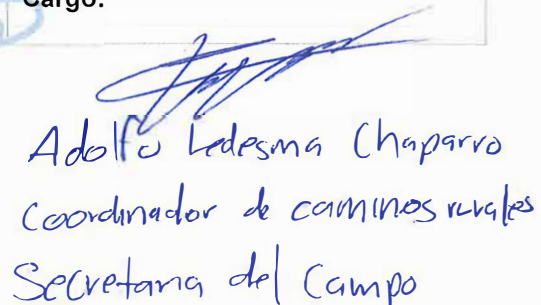 Cargo:
Adolfo Ledesma Chaparro
Coordinador de caminos rurales
Secretaria del Campo